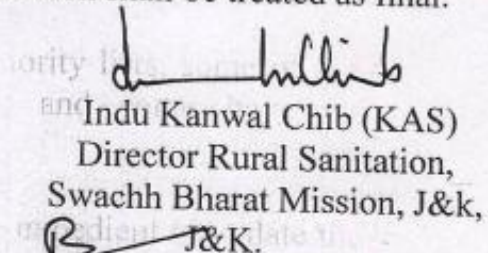 be treated as final.
Indu Kanwal Chib (KAS)
Director Rural Sanitation,
Swachh Bharat Mission, J&k,
J&K.